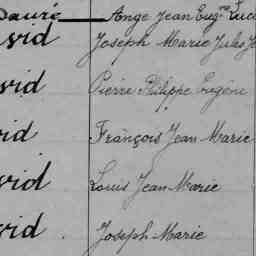 Dauré Ange Jean Eugne Luc
vid Joseph Marie Jules J
vid Pierre Philippe Eugène
vid François Jean Marie
vid Louis Jean Marie
vid Joseph Marie